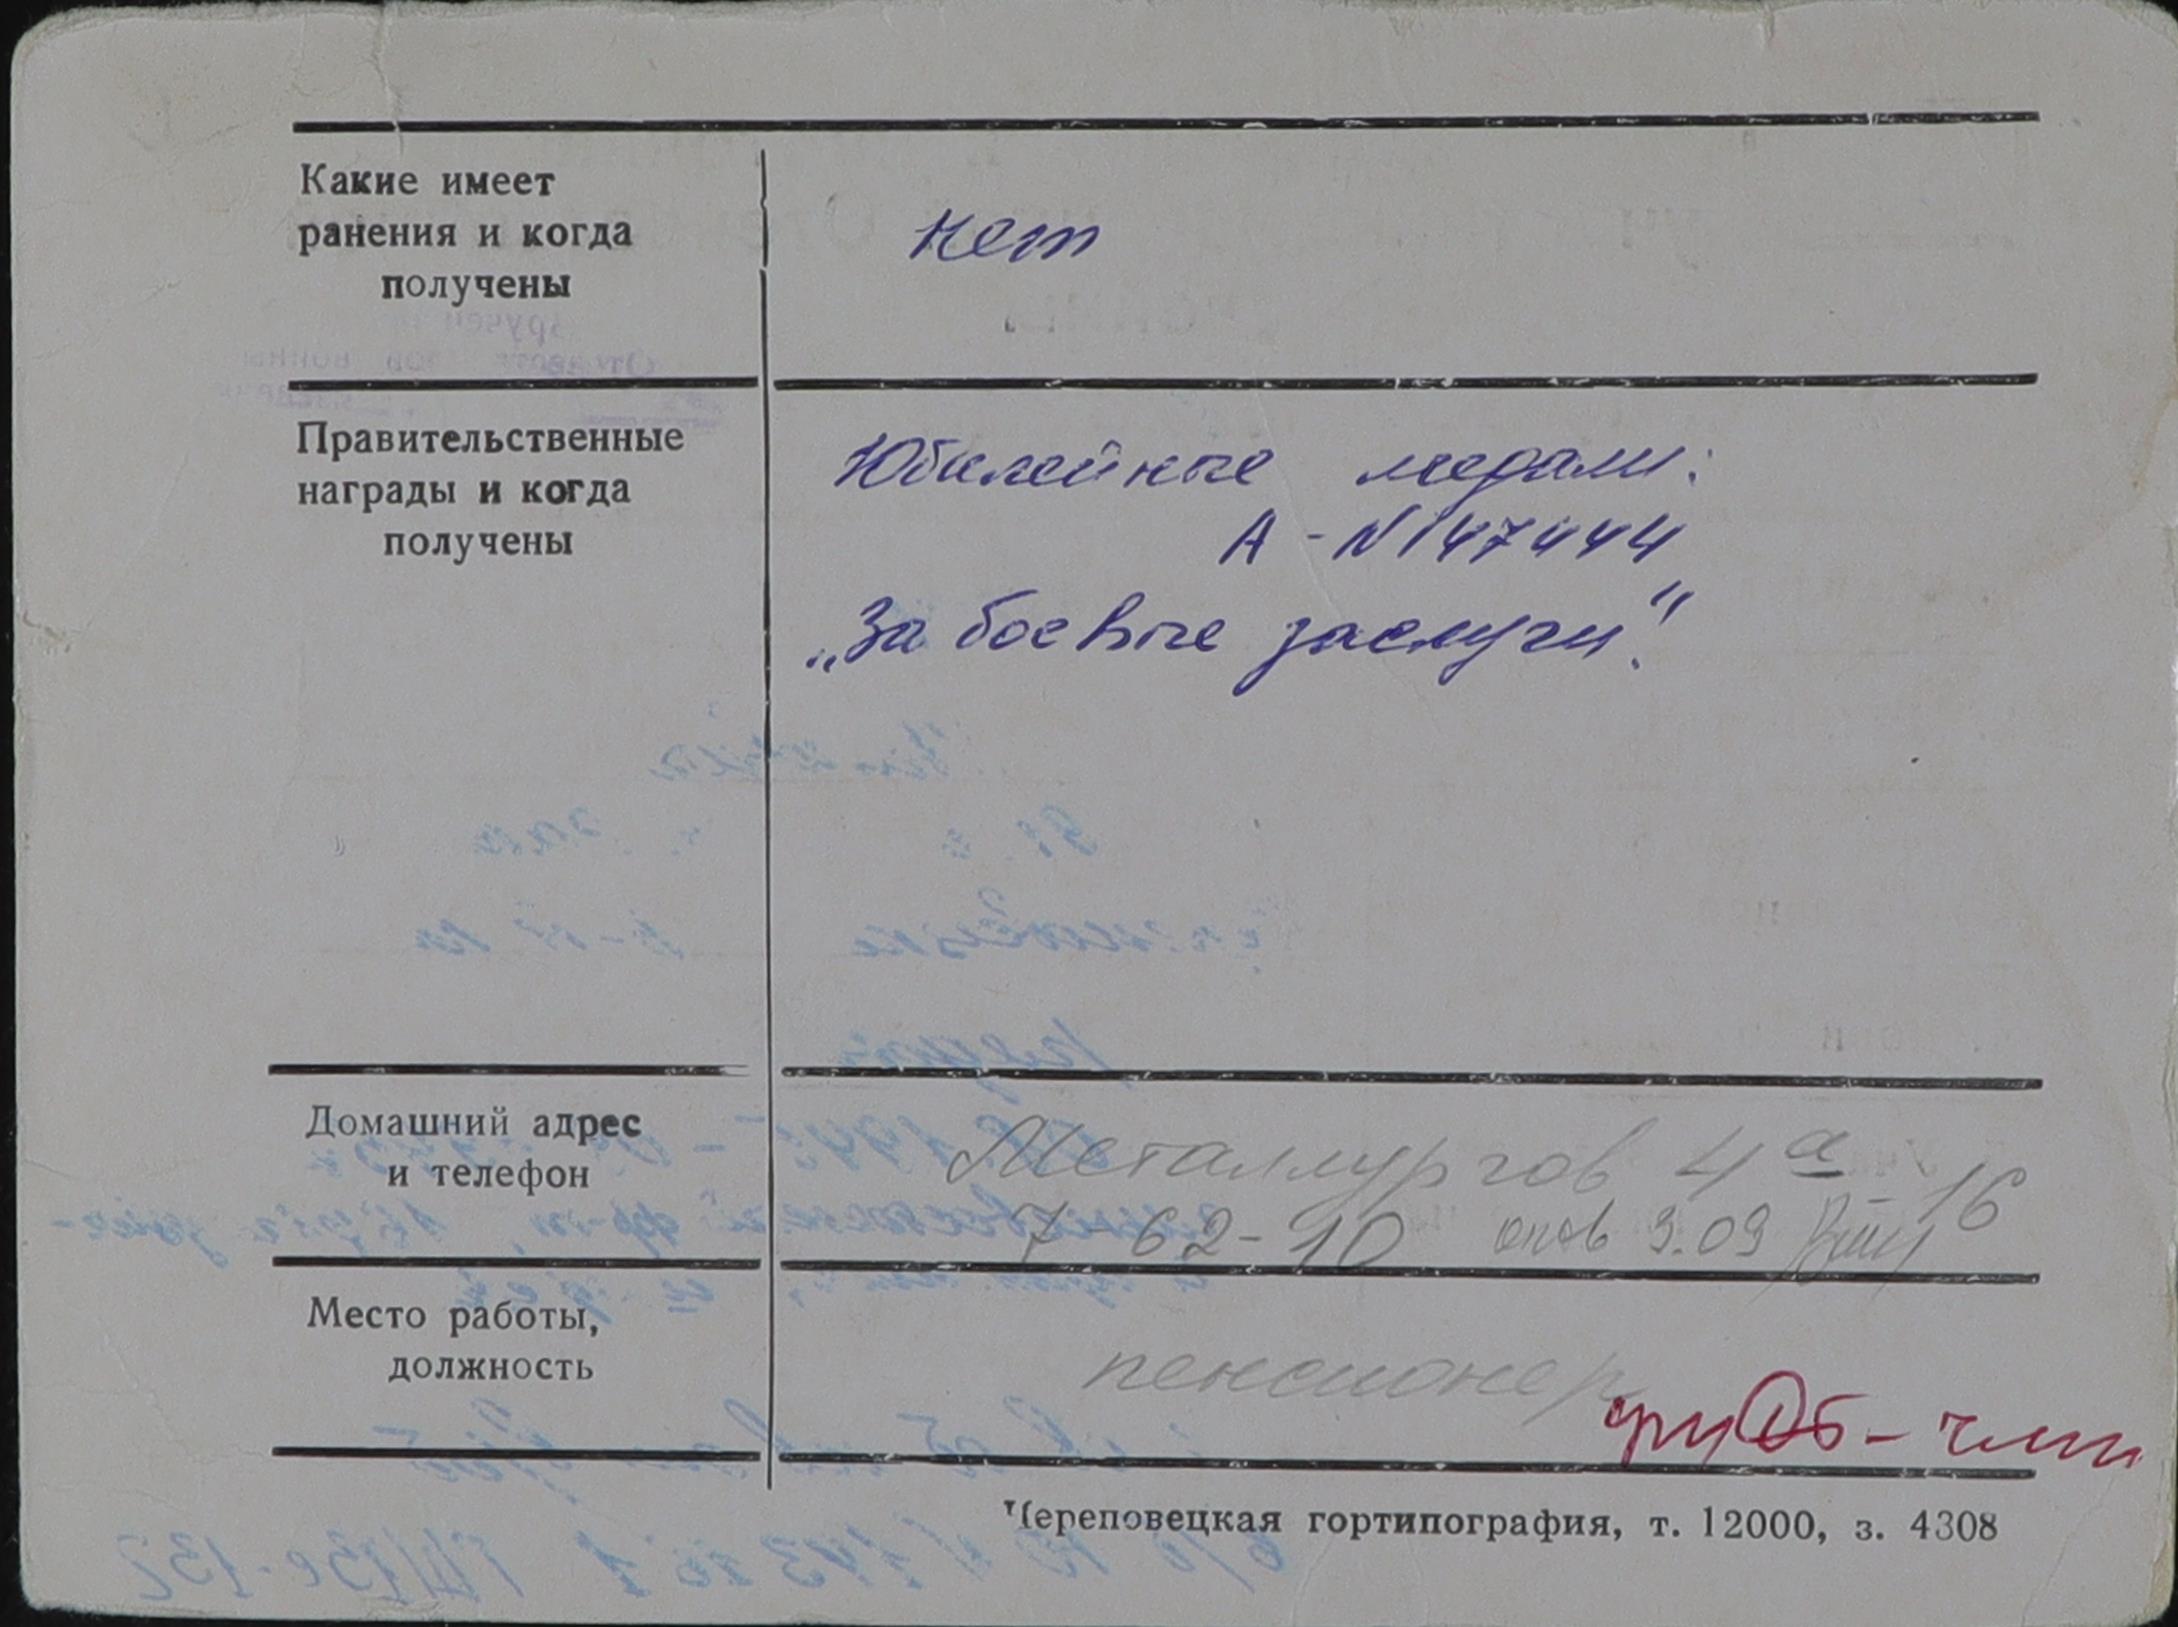 Какие имеет
ранения и когда
получены
нет
Правительственные
награды и когда
получены
Юбилейные медали:
А - N 147444
„За боевые заслуги".
Домашний адрес
и телефон
Металлургов 4а - 16
7-62-10 3.09
Место работы,
должность
пенсионер
Череповецкая гортипография, т. 12000, з. 4308